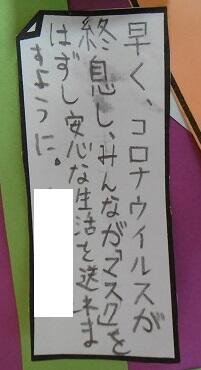 早く、コロナウイルスが
終息し、みんなが「マスク」を
はずし安心な生活を送れま
すように。